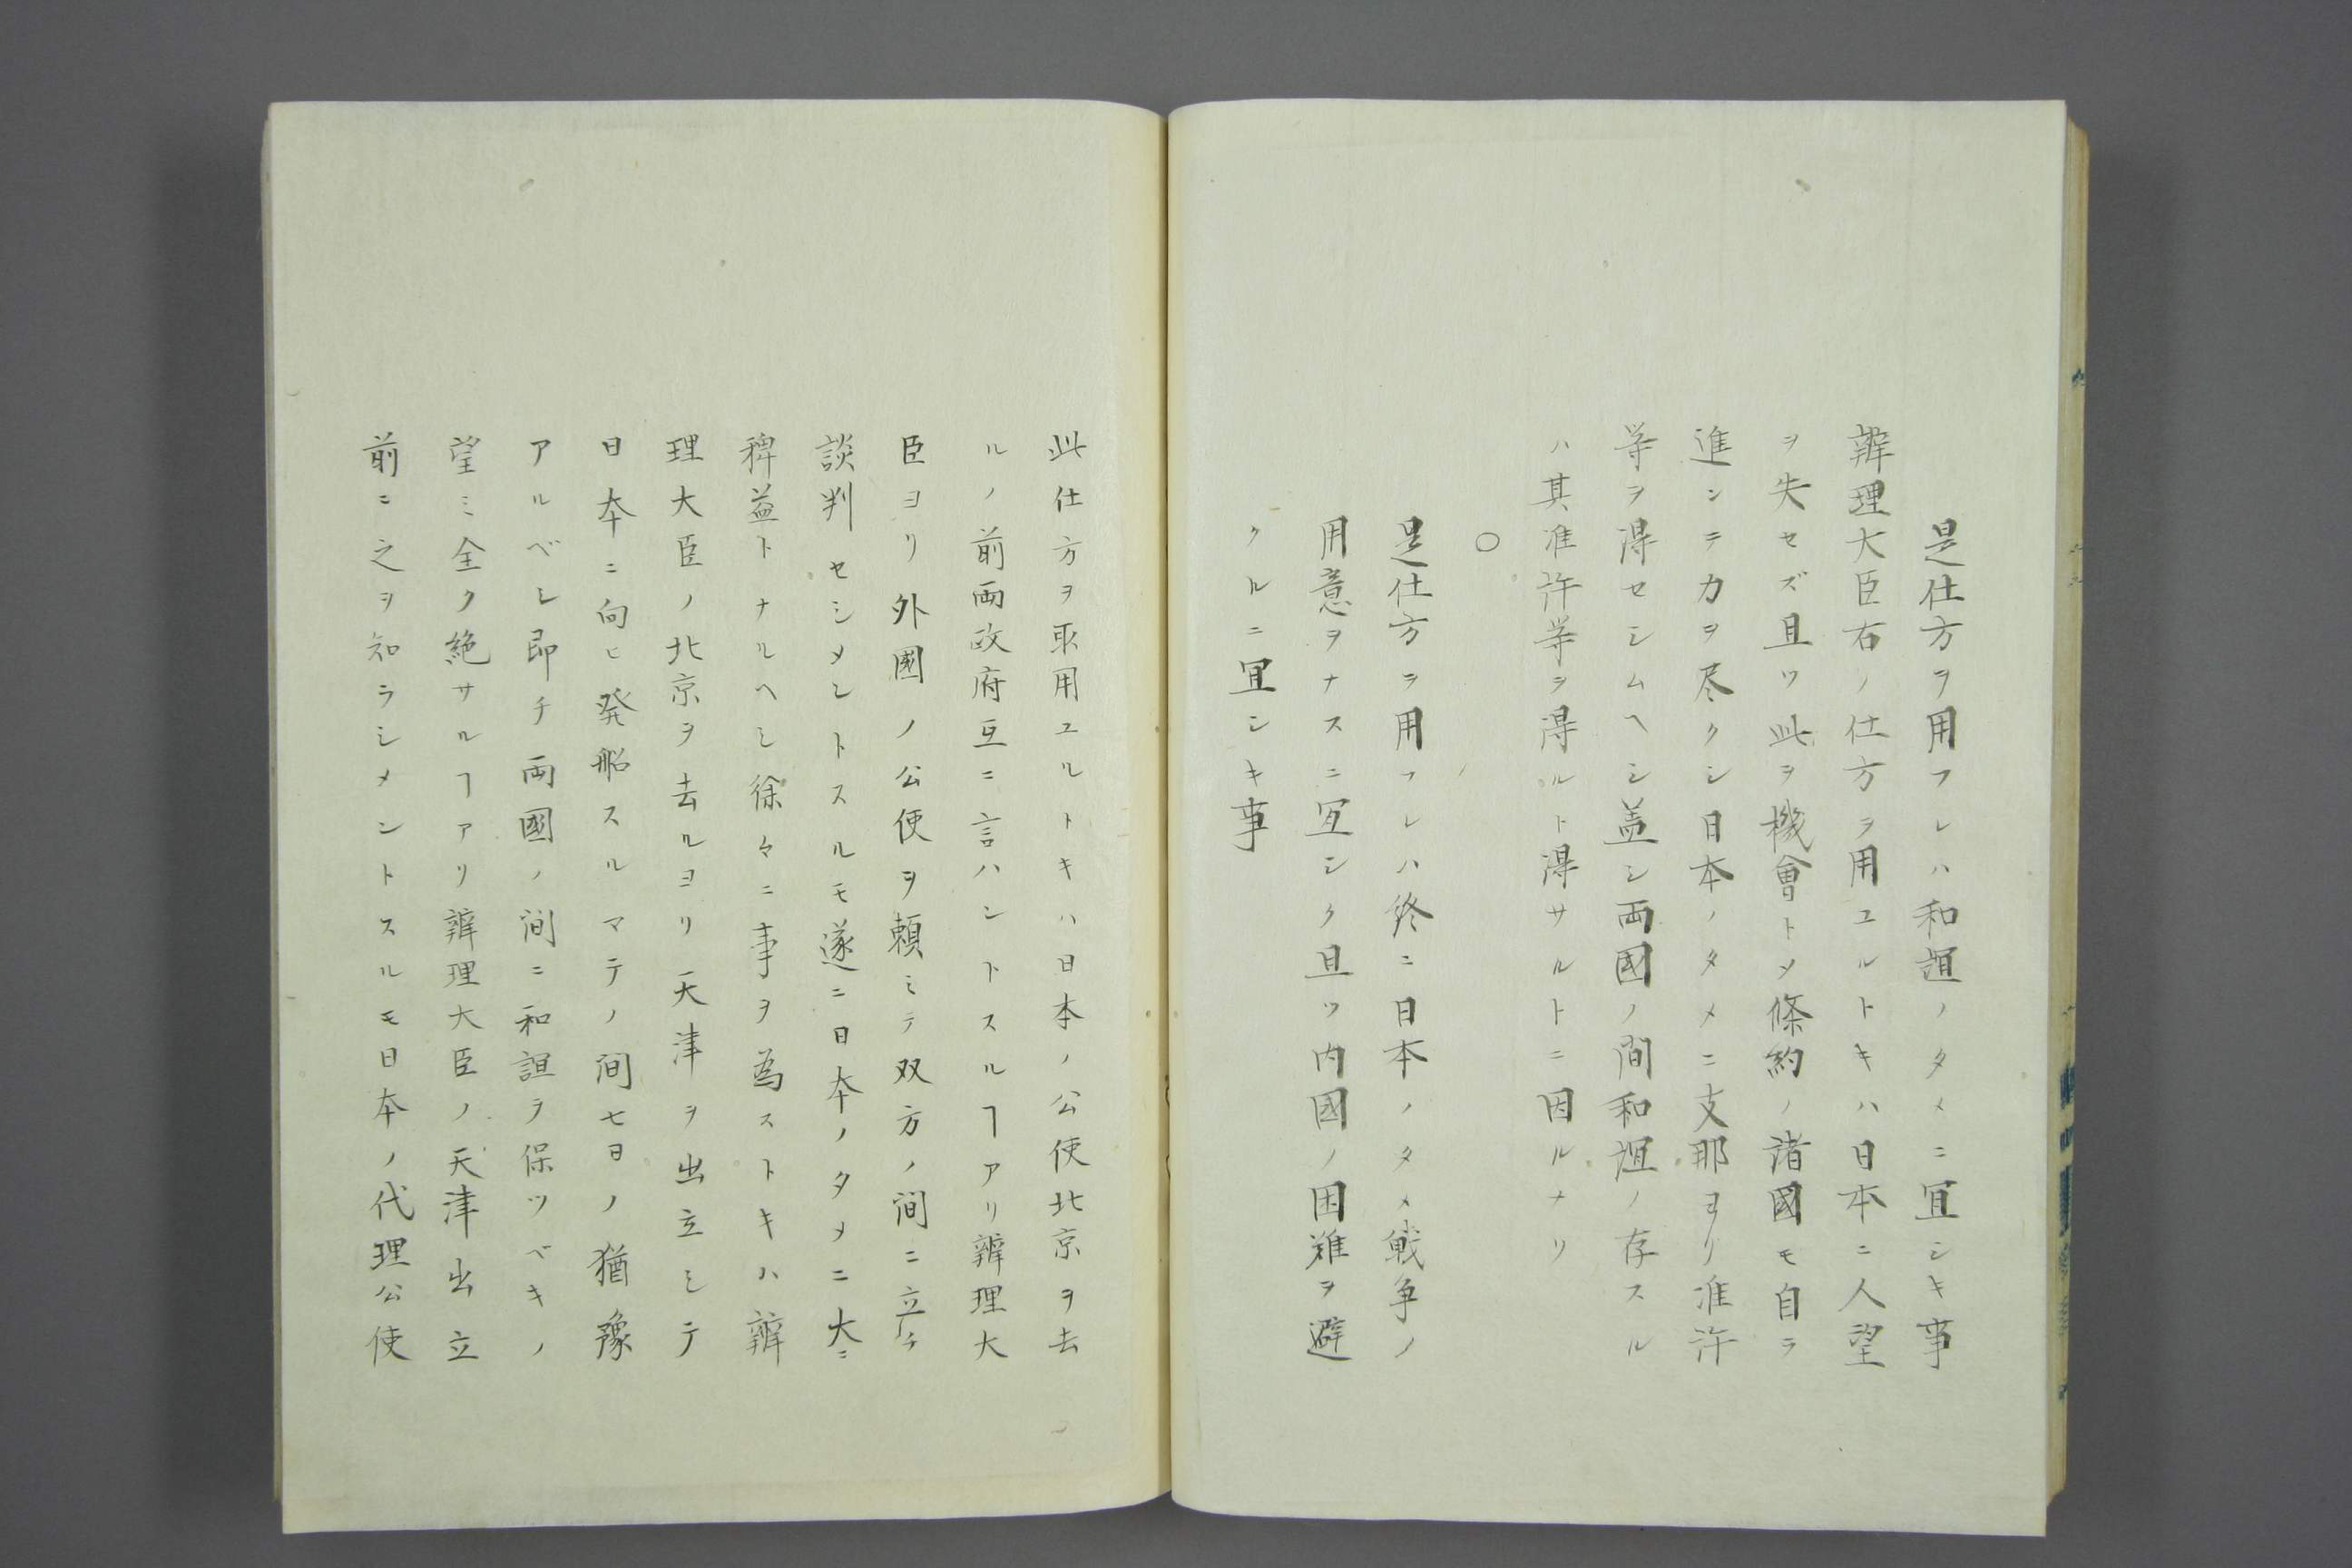 是仕方ヲ用フレハ和誼ノタメニ宜シキ事
辨理大臣右ノ仕方ヲ用ユルトキハ日本ニ人望
ヲ失セズ且ツ此ヲ機會トメ條約ノ諸國モ自ラ
進ンテ力ヲ尽クシ日本ノタメニ支那ヨリ准許
等ヲ得セシムヘシ盖シ両國ノ間和誼ノ存スル
ハ其准許等ヲ得ルト得サルトニ因ルナリ
〇
是仕方ヲ用フレハ終ニ日本ノタメ戦争ノ
用意ヲナスニ宜シク且ツ内國ノ困難ヲ避
クルニ宜シキ事
此仕方ヲ取用ユルトキハ日本ノ公使北京ヲ去
ルノ前両政府互ニ言ハントスルヿアリ辨理大
臣ヨリ外國ノ公使ヲ頼ミテ双方ノ間ニ立チ
談判セシメントスルモ遂ニ日本ノタメニ大ニ
稗益トナルヘシ徐々ニ事ヲ為ストキハ辨
理大臣ノ北京ヲ去ルヨリ天津ヲ出立シテ
日本ニ向ヒ発船スルマテノ間七ヨノ猶豫
アルベシ即チ両國ノ間ニ和誼ヲ保ツベキノ
望ミ全ク絶サルヿアリ辨理大臣ノ天津出立
前ニ之ヲ知ラシメントスルモ日本ノ代理公使